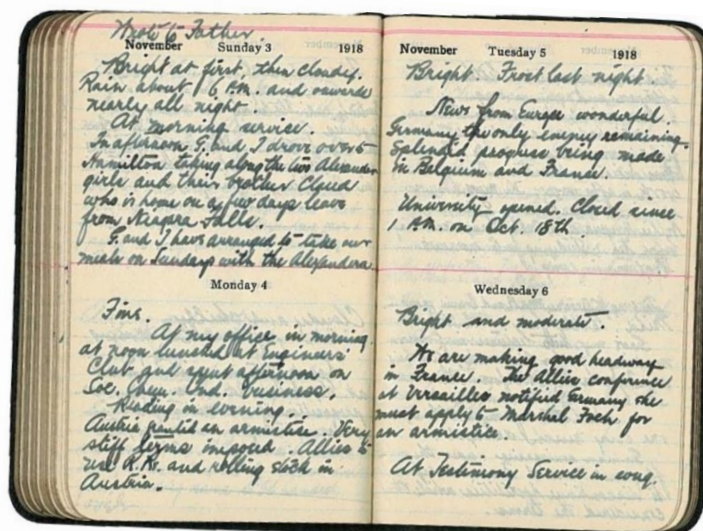 Wrote to Father
November Sunday 3 1918
Bright at first, then cloudy.
Rain about 6 P.M. and onwards
nearly all night.
At morning service.
In afternoon G. and I drove over to
Hamilton taking along the two Alexander
girls and their brother Claud
who is home on a few days leave
from Niagara Falls.
G. and I have arranged to take our
meals on Sundays with the Alexanders
Monday 4
Fine.
At my office in morning
at noon lunched at Engineers'
Club and spent afternoon on
Soc. Chem. Ind. business.
Reading in evening.
Austria granted an armistice. Very
stiff terms imposed. Allies to
use R. Rs. and rolling stock in
Austria.
November Tuesday 5 1918
Bright. Frost last night
News from Europe wonderful.
Germany the only enemy remaining.
Splendid progress being made
in Belgium and France.
University opened. Closed since
1 P.M. on Oct. 18th.
Wednesday 6
Bright and moderate.
We are making good headway
in France. The Allies conference
at Versailles notified Germany she
must apply to Marshal Foch for
an armistice
At Testimony Service in evng.